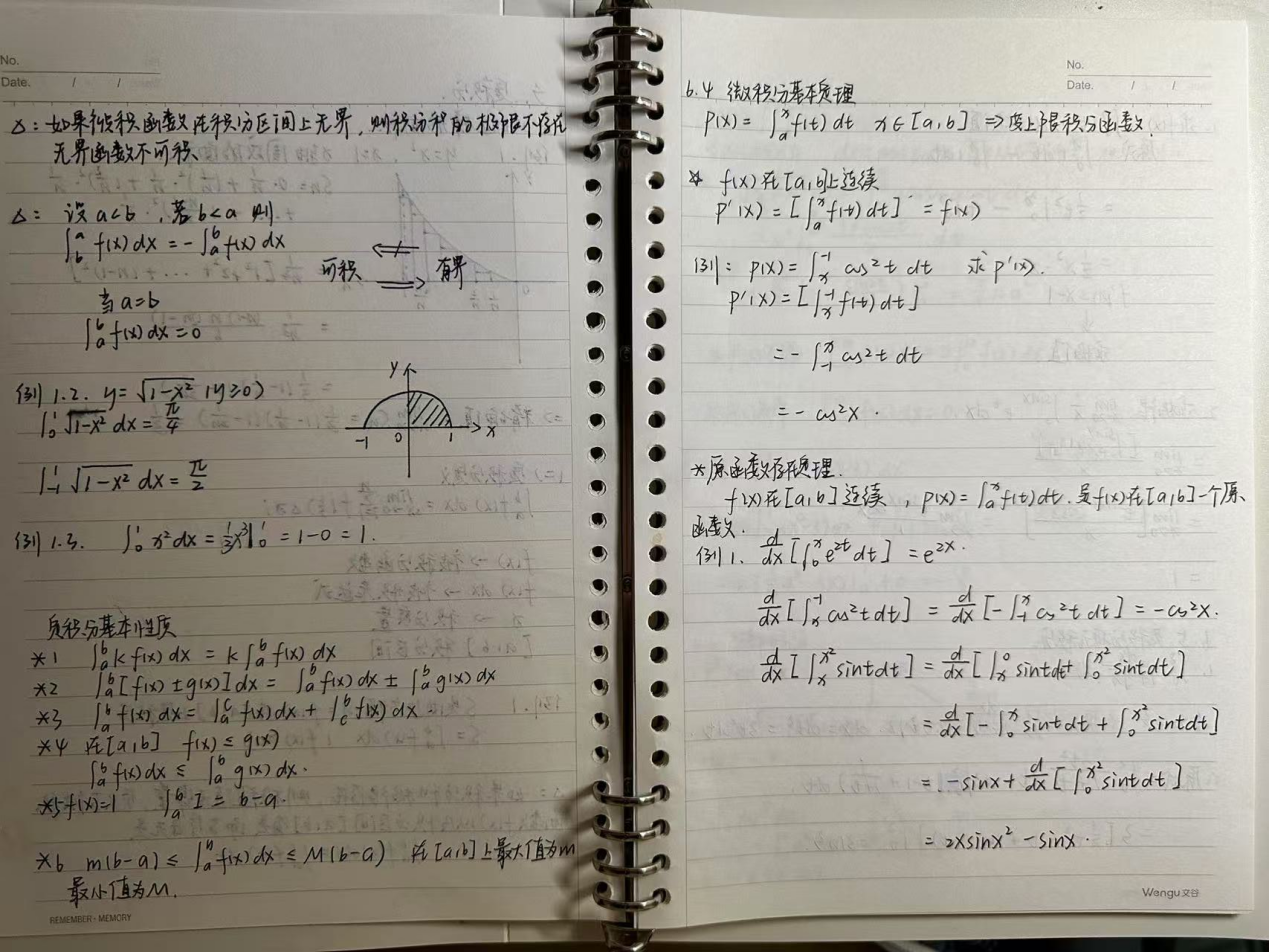 No.
Date. / /
△：如果被积函数在积分区间上无界，则积分和的极限不存在
无界函数不可积
△：设 a<b ，若 b<a 则
∫_b^a f(x) dx = -∫_a^b f(x) dx
可积 有界
当 a=b
∫_a^b f(x) dx = 0
例1.2. y=√(1-x²) (y≥0)
∫_0^1 √(1-x²) dx = π/4
y
-1 0 1 x
∫_{-1}^1 √(1-x²) dx = π/2
例1.3. ∫_0^1 x² dx = 1/3 x³|_0^1 = 1-0 = 1.
定积分基本性质
*1 ∫_a^b k f(x) dx = k ∫_a^b f(x) dx
*2 ∫_a^b [f(x) ± g(x)] dx = ∫_a^b f(x) dx ± ∫_a^b g(x) dx
*3 ∫_a^b f(x) dx = ∫_a^c f(x) dx + ∫_c^b f(x) dx
*4 在[a,b] f(x) ≤ g(x)
∫_a^b f(x) dx ≤ ∫_a^b g(x) dx.
*5 f(x)=1 ∫_a^b I = b-a.
*6 m(b-a) ≤ ∫_a^b f(x) dx ≤ M(b-a) 在[a,b]上最大值为m
最小值为M.
REMEMBER·MEMORY
No.
Date. / /
6.4 微积分基本定理
P(x) = ∫_a^x f(t) dt x∈[a,b] ⇒ 变上限积分函数.
* f(x)在[a,b]上连续
P'(x) = [∫_a^x f(t) dt]' = f(x)
例：P(x) = ∫_x^{-1} cos²t dt 求 P'(x).
P'(x) = [∫_x^{-1} f(t) dt]
= -∫_{-1}^x cos²t dt
= -cos²x.
*原函数存在定理.
f(x)在[a,b]连续，P(x) = ∫_a^x f(t) dt. 是f(x)在[a,b]一个原
函数.
例1. d/dx [∫_0^x e^{2t} dt] = e^{2x}.
d/dx [∫_x^{-1} cos²t dt] = d/dx [-∫_{-1}^x cos²t dt] = -cos²x.
d/dx [∫_x^{x²} sint dt] = d/dx [∫_x^0 sint dt + ∫_0^{x²} sint dt]
= d/dx [-∫_0^x sint dt + ∫_0^{x²} sint dt]
= -sinx + d/dx [∫_0^{x²} sint dt]
= 2x sinx² - sinx.
Wengu文谷